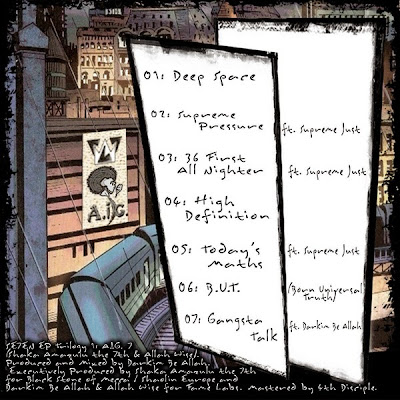 01: Deep Space
02: Supreme
Pressure
ft. Supreme Just
03: 36 First
All Nighter
ft. Supreme Just
04: High
Definition
05: Today's
Maths
ft. Supreme Just
06: B.U.T.
(Born Universal
Truth)
07: Gangsta
Talk
ft. Darkim Be Allah
A.I.G.
SE7EN EP Trilogy 1: A.I.G. 7
(Shaka Amazulu the 7th & Allah Wise)
Produced and Mixed by Darkim Be Allah.
Executively Produced by Shaka Amazulu the 7th
for Black Stone of Mecca / Shaolin Europe and
Darkim Be Allah & Allah Wise for Fame Labs. Mastered by 4th Disciple.